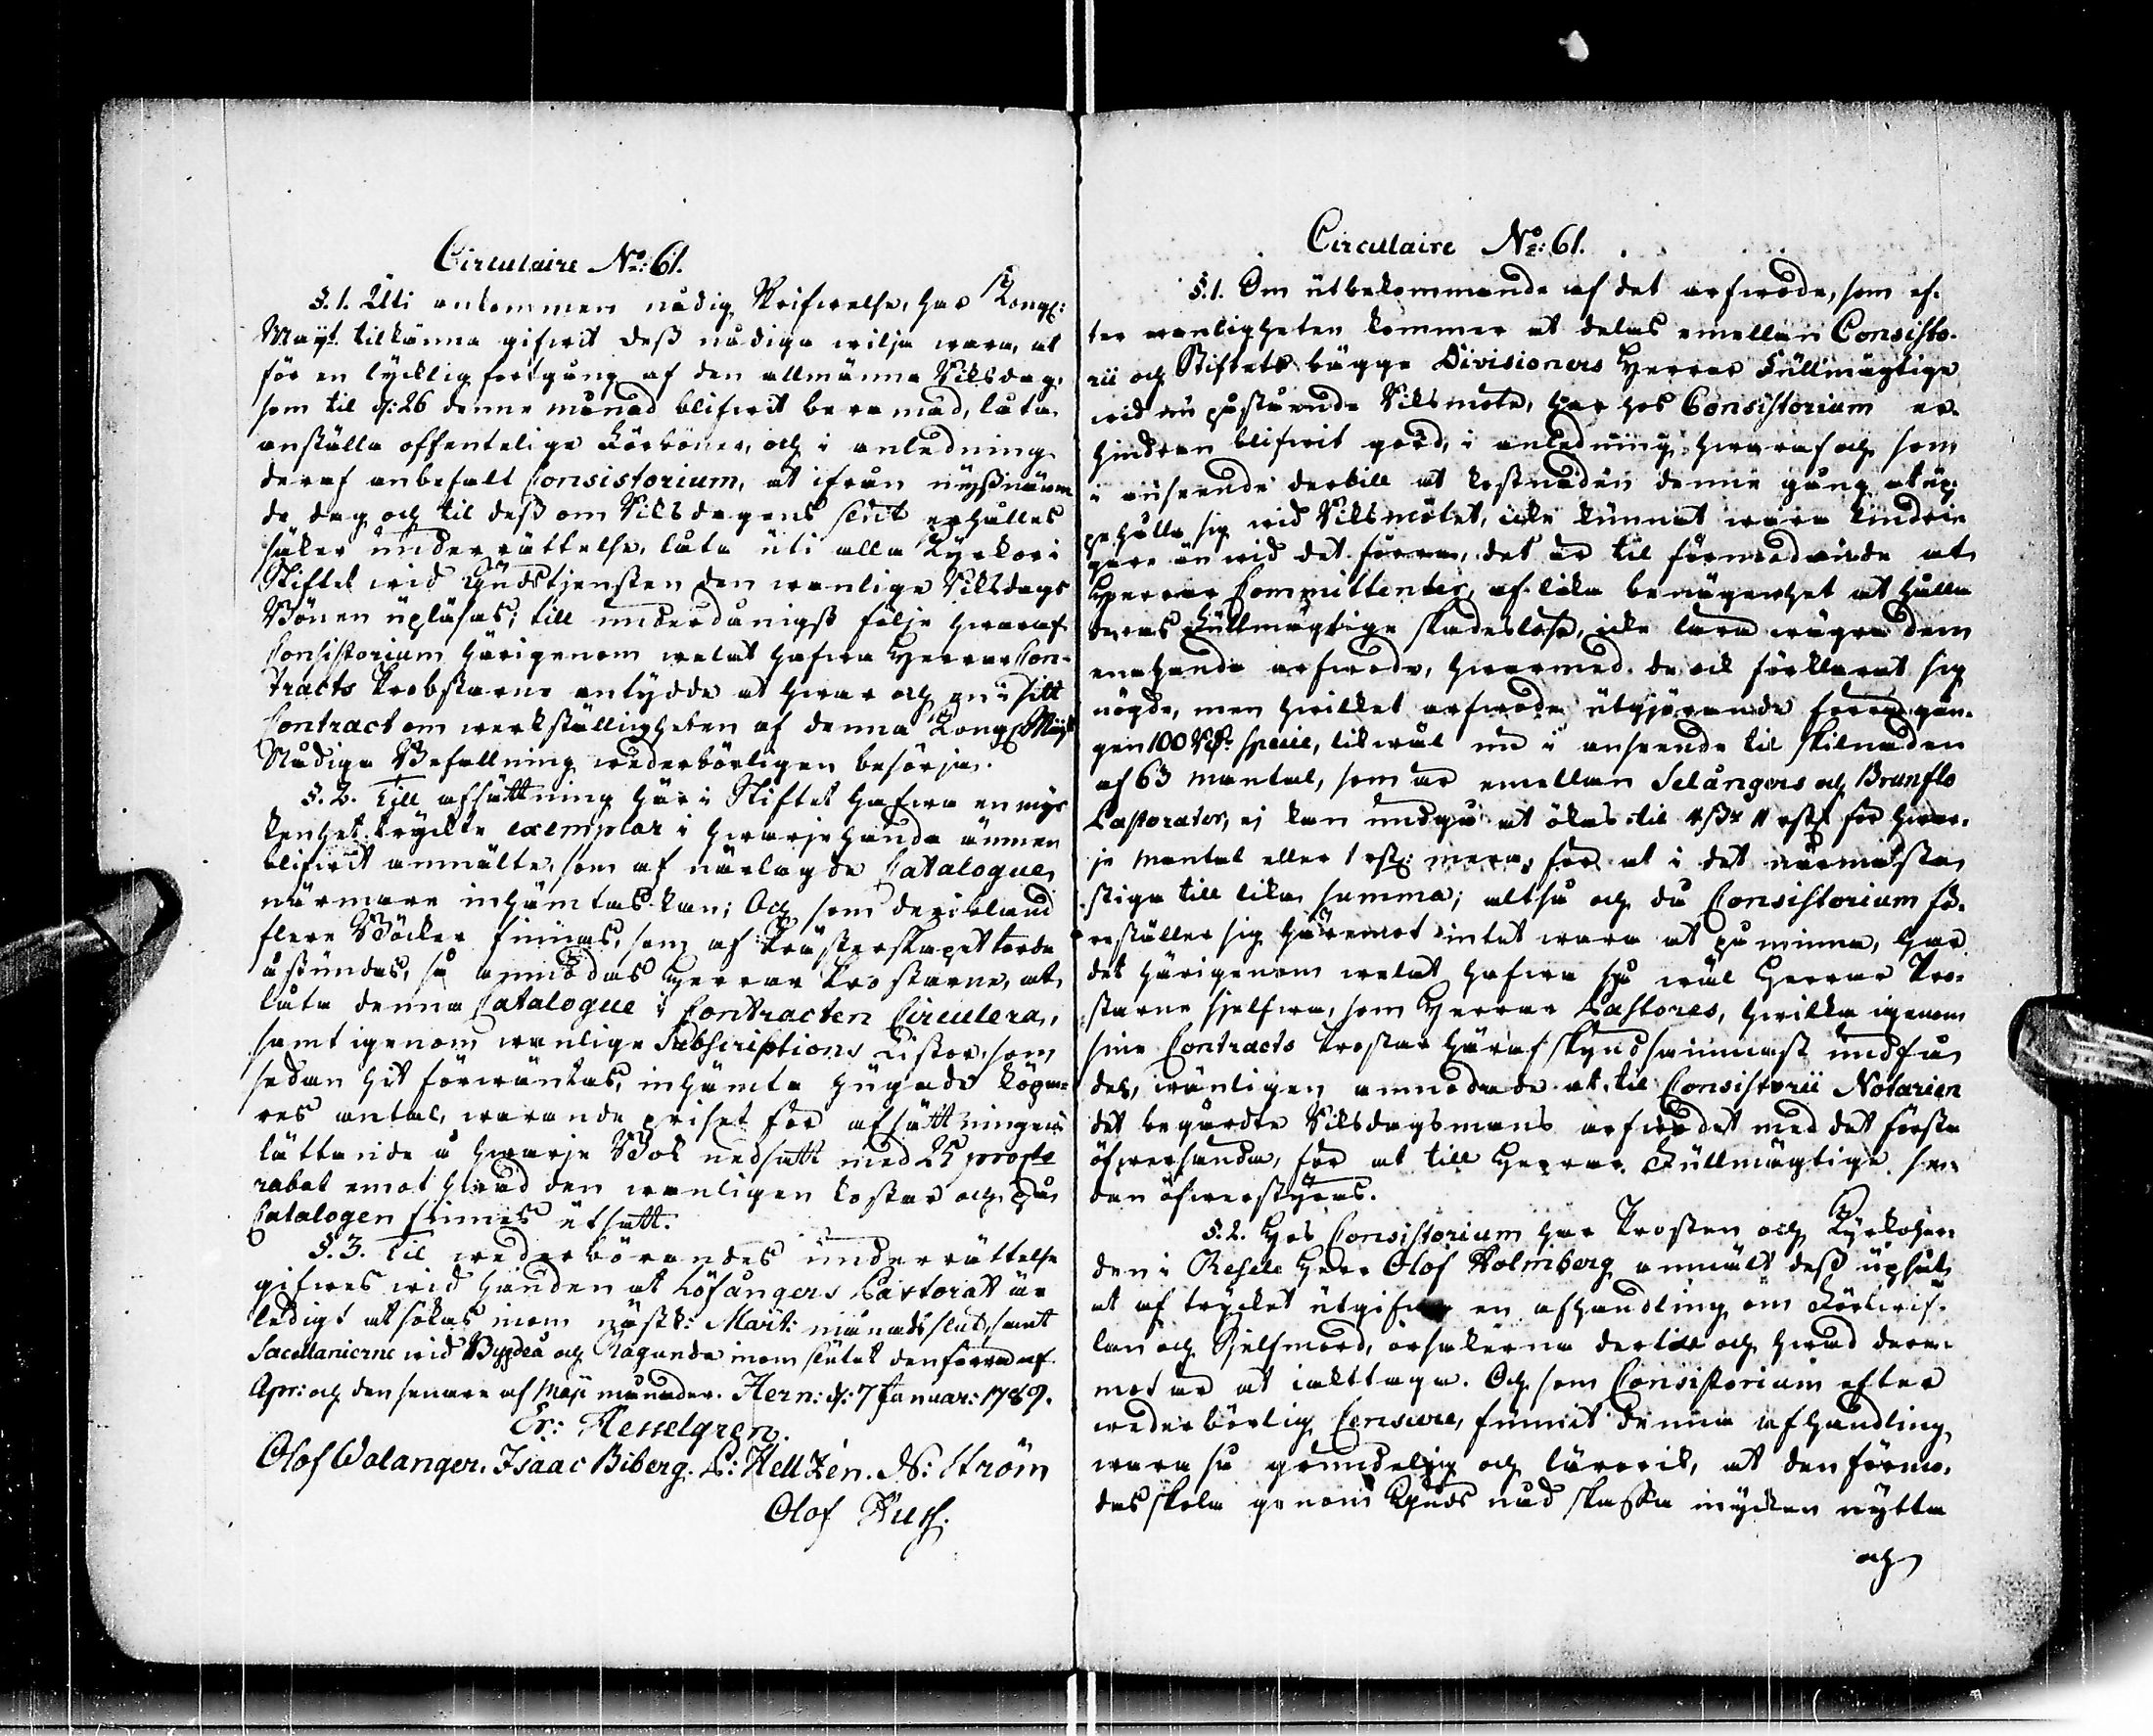 Circulaire No: 61.
§. 1. Uti ankommen nådig Skrifwelse, har Kongl:
Mayt. tilkänna gifwit dess nådiga wilja wara, at
för en lycklig fortgång af den allmänna Riksdag,
som til d: 26 denne månad blifwit beramad, låta
anställa offentelige Förböner, och i anledning
deraf anbefalt Consistorium, at ifrån nyssnämn
de dag och til dess om Riksdagens slut erhålles
säker underrättelse, låta uti alla Kyrkor i
Stiftet wid Gudstjensten den wanlige Riksdags
Bönen upläsas; till underdånigst följe hwaraf
Consistorium härigenom welat hafwa Herrar Con-
tracts Probstarne antydde at hwar och en i sitt
Contract om werkställigheten af denna Kongl Mayts
Nådiga Befallning wederbörligen besörja.
§. 2. Till afsättning här i Stiftet hafwa en myc
kenhet tryckte exemplar i hwarjehanda ämnen
blifwit anmälte, som af närlagde Catalogue,
närmare inhämtas kan; Och som deribland
flere Böcker finnas, som af Prästerskapet torde
åstundas, så anmodas Herrar Prostarne, at
låta denna Catalogue i Contracten Circulera,
samt igenom wanlige Subscriptions Listor, som
sedan hit förwäntas, inhämta hugade köpa-
res antal, warande priset för afsättningens
lättande å hwarje Bok nedsatt med 25 procte
rabat emot hwad den wanligen kostar och på
Catalogen finnes utsatt.
§. 3. Til wederbörandes underrättelse
gifwes wid handen at Löfångers Pastorat är
ledigt at sökas inom nästk: Mart: månads slut, samt
Sacellanierne wid Bygdeå och Ragunda inom slutet den förra af
Apr: och den senare af Maji månader. Hern: d: 7 Januar: 1789.
Er: Hesselgren.
Olof Walanger. Isaac Biberg. P: Hellzén. N: Ström
Olof Huss.
Circulaire No: 61.
§. 1. Om utbekommande af det arfwode, som ef-
ter wanligheten kommer at delas emellan Consisto-
rii och Stiftets bägge Divisioners Herrar Fullmägtige
wid nu påstående Riksmöte, har hos Consistorium er-
hindran blifwit gjord, i anledning hwaraf och som
i anseende dertill at kostnaden denne gång at up-
pehålla sig wid Riksmötet, icke kunnat wara lindri-
gare än wid det förra, det är til förmodande at
Herrar Committenter, af lika benägenhet at hålla
deras Fullmägtige skadeslöse, icke lära wägra dem
enahanda arfwode, hwarmed de ock förklarat sig
nögde, men hwilket arfwode utgjörande förra gån-
gen 100 Rdr specie, likwäl nu i anseende til skilnaden
af 63 mantal, som är emellan Selångers och Brunflo
Pastorater, ej kan undgå at ökas til 4 sk 11 rst för hwar-
je mantal eller 1 rst: mera, för at i det närmaste
stiga till lika summa; altså och då Consistorium fö-
reställer sig häremot intet wara at påminna, har
det härigenom welat hafwa så wäl Herrar Pro-
starne sjelfwa, som Herrar Pastores, hwilka igenom
sine Contracts Prostar häraf skyndsammast undfå
del, wänligen anmodade at til Consistorii Notarien
det begärdte Riksdagsmans arfwodet med det första
öfwersända, för at till Herrar Fullmägtige se-
dan öfwerstyras.
§. 2. Hos Consistorium har Prosten och Kyrkoher-
den i Resele Herr Olof Holmberg anmält dess upsåt
at af trycket utgifwa en afhandling om Förtwif-
lan och Sjelfmord, orsakerna dertill och hwad dere-
mot är at iakttaga. Och som Consistorium efter
wederbörlig Censure, funnit denna afhandling
wara så grundelig och lärorik, at den förmo-
das skola genom Guds nåd skaffa mycken nytta
och